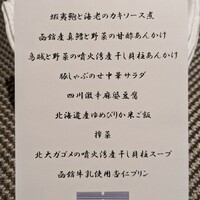 蝦夷鮑と海老のカキソース煮
函館産真鱈と野菜の甘酢あんかけ
烏賊と野菜の噴火湾産干し貝柱あんかけ
豚しゃぶのせ中華サラダ
四川激辛麻婆豆腐
北海道産ゆめぴりか米ご飯
搾菜
北大ガゴメの噴火湾産干し貝柱スープ
函館牛乳使用杏仁プリン